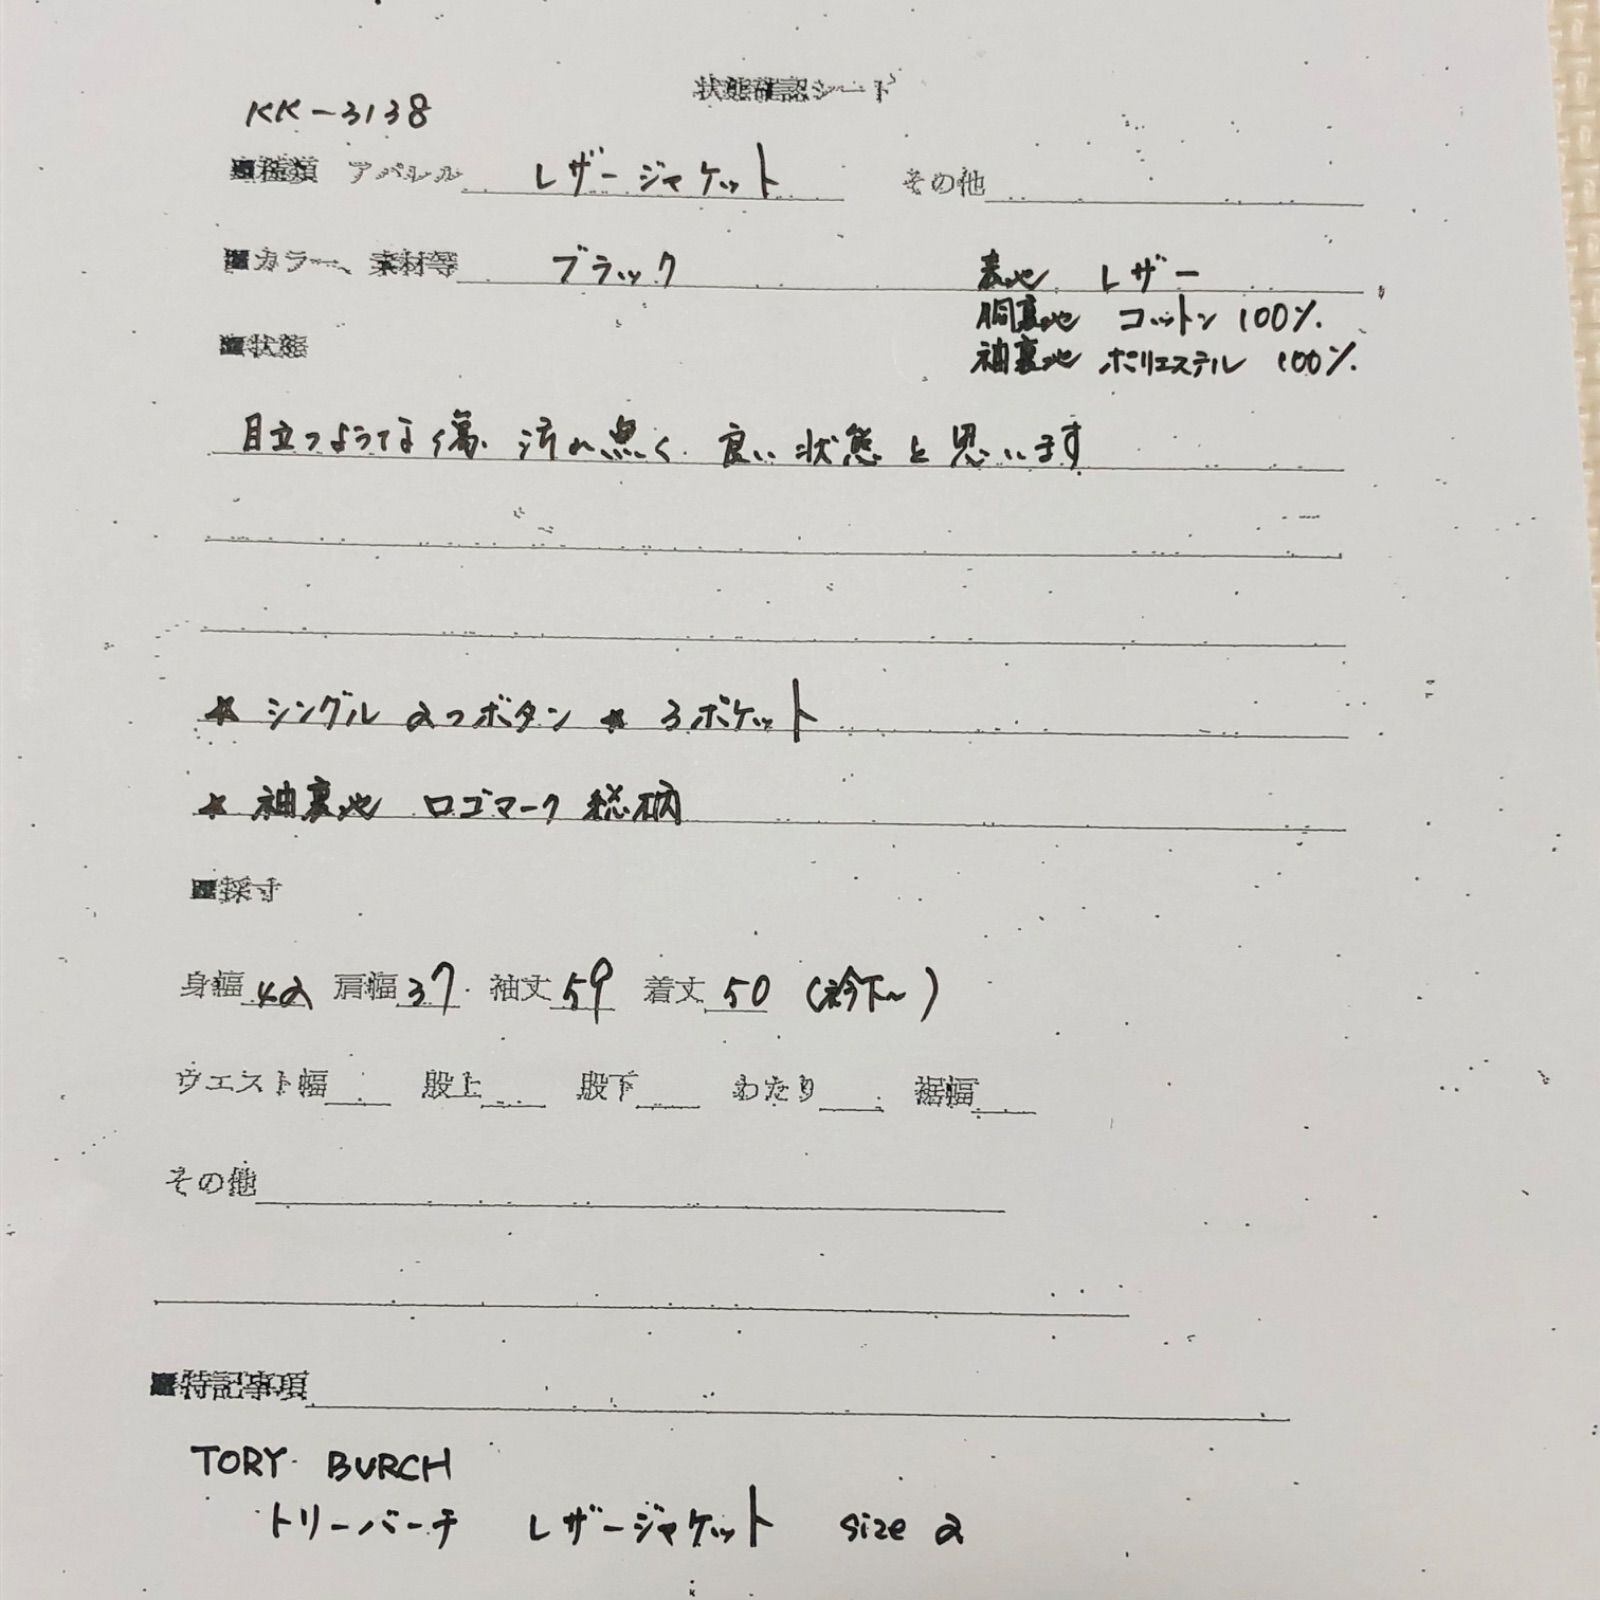 状態確認シート
KK-3138
■種類 アパレル レザージャケット その他
■カラー、素材等 ブラック 表地 レザー
胴裏地 コットン 100%
■状態
袖裏地 ポリエステル 100%
目立つような傷、汚れ無く 良い状態と思います
★ シングル 2つボタン ★ 3ポケット
★ 袖裏地 ロゴマーク 総柄
■採寸
身幅 42 肩幅 37 袖丈 59 着丈 50 (衿下〜)
ウエスト幅 股上 股下 わたり 裾幅
その他
■特記事項
TORY BURCH
トリーバーチ レザージャケット size 2